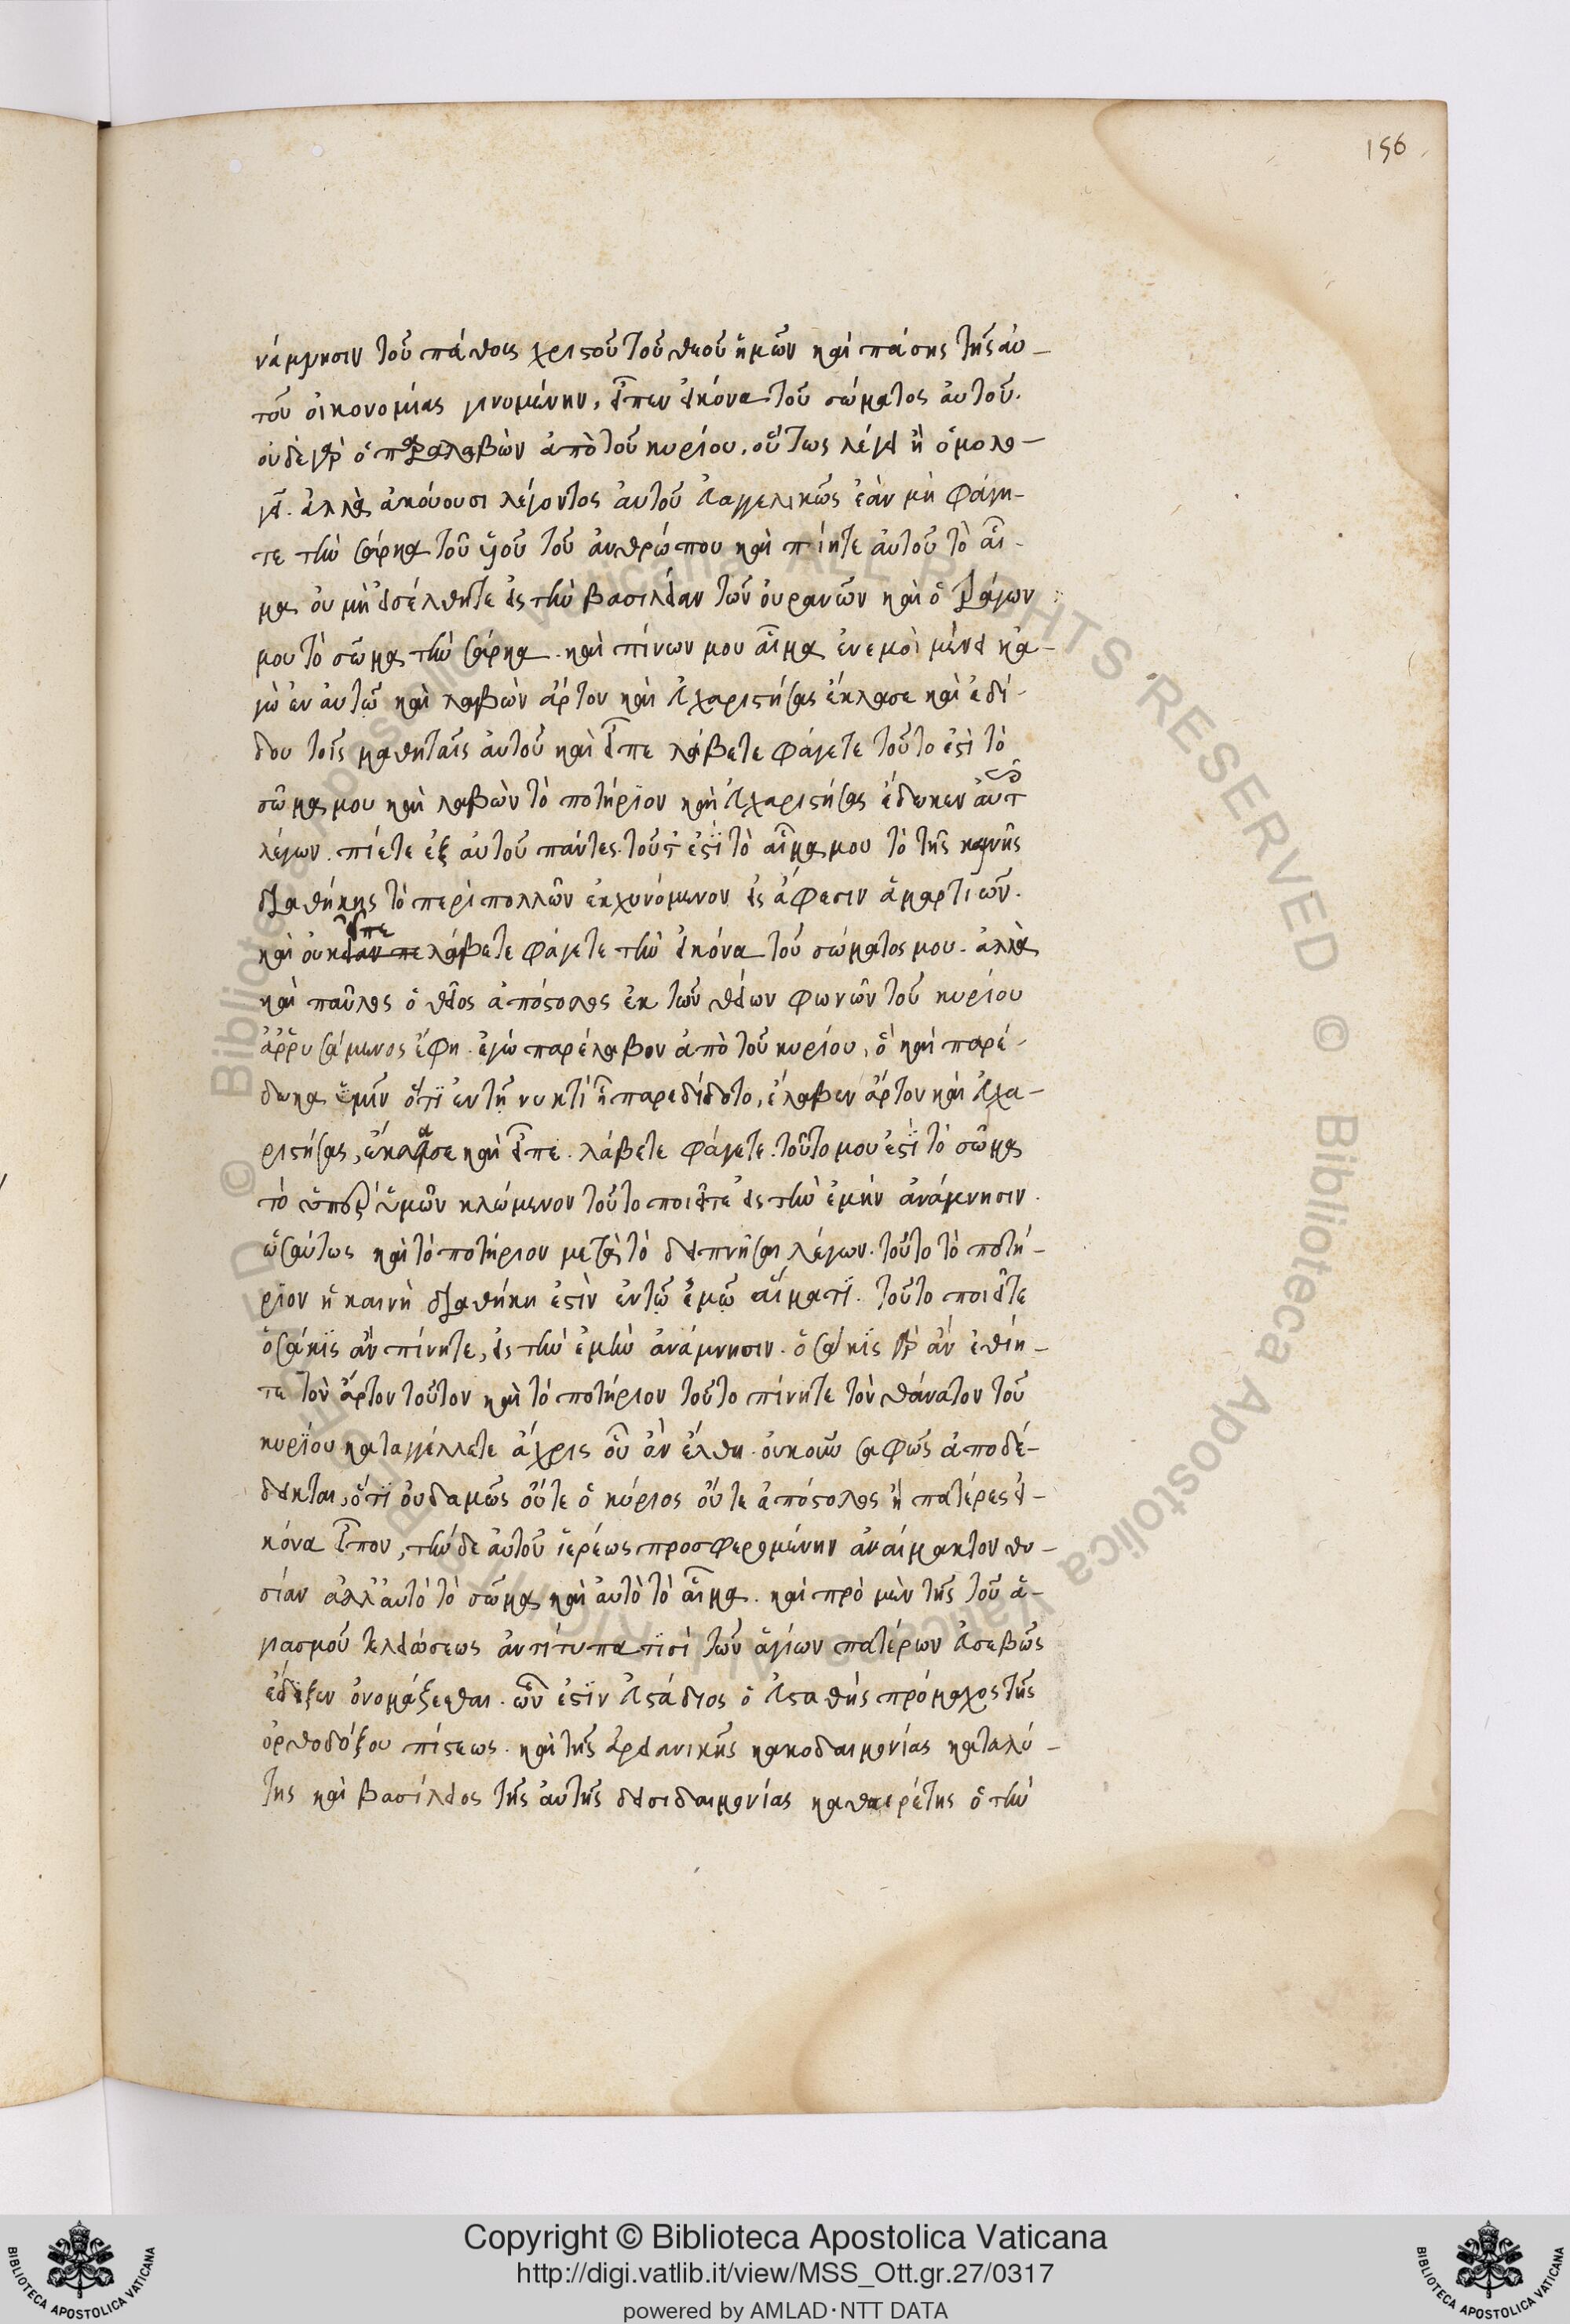 156
νάμνησιν τοῦ πάθους χριστοῦ τοῦ θεοῦ ἡμῶν καὶ πάσης τῆς αὐ-
τοῦ οἰκονομίας γινομένην, εἶπεν εἰκόνα τοῦ σώματος αὐτοῦ.
οὐδὲ γὰρ ὁ παραλαβὼν ἀπὸ τοῦ κυρίου. οὕτως λέγει ἢ ὁμολο-
γεῖ. ἀλλὰ ἀκούουσι λέγοντος αὐτοῦ εὐαγγελικῶς ἐὰν μὴ φάγη-
τε τὴν σάρκα τοῦ υἱοῦ τοῦ ἀνθρώπου καὶ πίητε αὐτοῦ τὸ αἷ-
μα οὐ μὴ εἰσέλθητε εἰς τὴν βασιλείαν τῶν οὐρανῶν καὶ ὁ τρώγων
μου τὸ σῶμα τὴν σάρκα. καὶ πίνων μου αἷμα ἐν ἐμοὶ μένει κἀ-
γὼ ἐν αὐτῷ καὶ λαβὼν ἄρτον καὶ εὐχαριστήσας ἔκλασε καὶ ἐδί-
δου τοῖς μαθηταῖς αὐτοῦ καὶ εἶπε λάβετε φάγετε τοῦτο ἐστὶ τὸ
σῶμα μου καὶ λαβὼν τὸ ποτήριον καὶ εὐχαριστήσας ἔδωκεν αὐτοῖς
λέγων. πίετε ἐξ αὐτοῦ πάντες. τοῦτό ἐστϊ τὸ αἷμα μου τὸ τῆς καινῆς
διαθήκης τὸ περὶ πολλῶν ἐκχυνόμενον εἰς ἄφεσιν ἁμαρτιῶν.
καὶ οὐκ εἶπε λάβετε φάγετε τὴν εἰκόνα τοῦ σώματος μου. ἀλλὰ
καὶ παῦλος ὁ θεῖος ἀπόστολος ἐκ τῶν θείων φωνῶν τοῦ κυρίου
ἀρρυσάμενος ἔφη. ἐγὼ παρέλαβον ἀπὸ τοῦ κυρίου, ὃ καὶ παρέ-
δωκα ὑμῖν ὅτϊ ἐν τῇ νυκτὶ ᾗ παρεδίδοτο, ἔλαβεν ἄρτον καὶ εὐχα-
ριστήσας, ἔκλασε καὶ εἶπε. λάβετε φάγετε. τοῦτο μου ἐστϊ τὸ σῶμα
τὸ ὑπὲρ ὑμῶν κλώμενον τοῦτο ποιεῖτε εἰς τὴν ἐμὴν ἀνάμνησιν.
ὡσαύτως καὶ τὸ ποτήριον μετὰ τὸ δειπνῆσαι λέγων. τοῦτο τὸ ποτή-
ρϊον ἡ καινὴ διαθήκη ἐστὶν ἐν τῷ ἐμῷ αἵματϊ. τοῦτο ποιεῖτε
ὁσάκϊς ἂν πίνητε, εἰς τὴν ἐμὴν ἀνάμνησιν. ὁσάκϊς γὰρ ἂν ἐσθίη-
τε τὸν ἄρτον τοῦτον καὶ τὸ ποτήριον τοῦτο πίνητε τὸν θάνατον τοῦ
κυρίου καταγγέλλετε ἄχρις οὗ ἂν ἔλθη. οὐκοῦν σαφῶς ἀποδέ-
δεικται, ὅτϊ οὐδαμῶς οὔτε ὁ κύριος οὔτε ἀπόστολος ἢ πατέρες εἰ-
κόνα εἶπον, τὴν δε αὐτοῦ ἱερέως προσφερομένην ἀναίμακτον θυ-
σίαν ἀλλ' αὐτὸ τὸ σῶμα καὶ αὐτὸ τὸ αἷμα. καὶ πρὸ μὲν τῆς τοῦ ἁ-
γιασμοῦ τελειώσεως ἀντίτυπα τϊσὶ τῶν ἁγίων πατέρων εὐσεβῶς
ἔδοξεν ὀνομάζεσθαι. ὧν ἐστϊν εὐστάθιος ὁ εὐσταθὴς πρόμαχος τῆς
ὀρθοδόξου πίστεως. καὶ τῆς ἀρειανικῆς κακοδαιμονίας καταλύ-
της καὶ βασίλειος τῆς αὐτῆς δεισιδαιμονίας καθαιρέτης ὁ τὴν
Copyright © Biblioteca Apostolica Vaticana
http://digi.vatlib.it/view/MSS_Ott.gr.27/0317
powered by AMLAD·NTT DATA